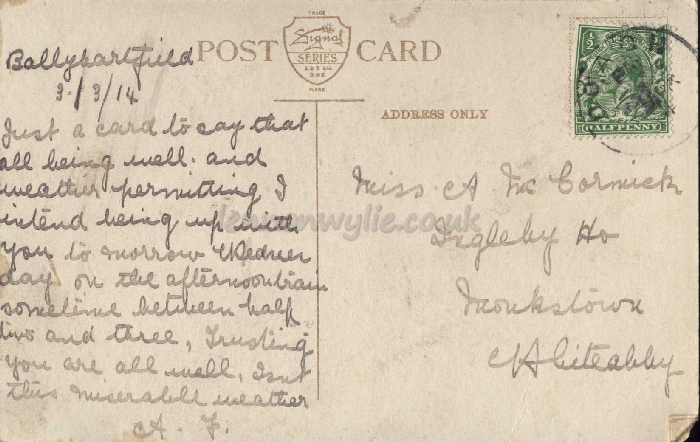 POST CARD
TRADE
Signal
SERIES
MARK
ADDRESS ONLY
HALFPENNY
Ballyhartfield
3/3/14
Just a card to say that
all being well. and
weather permitting I
intend being up with
you to morrow Wednes
day on the afternoon train
sometime between half
two and three, Trusting
you are all well, Isnt
this miserable weather
A. F.
Miss A McCormick
Ingleby Ho
Monkstown
Whiteabby